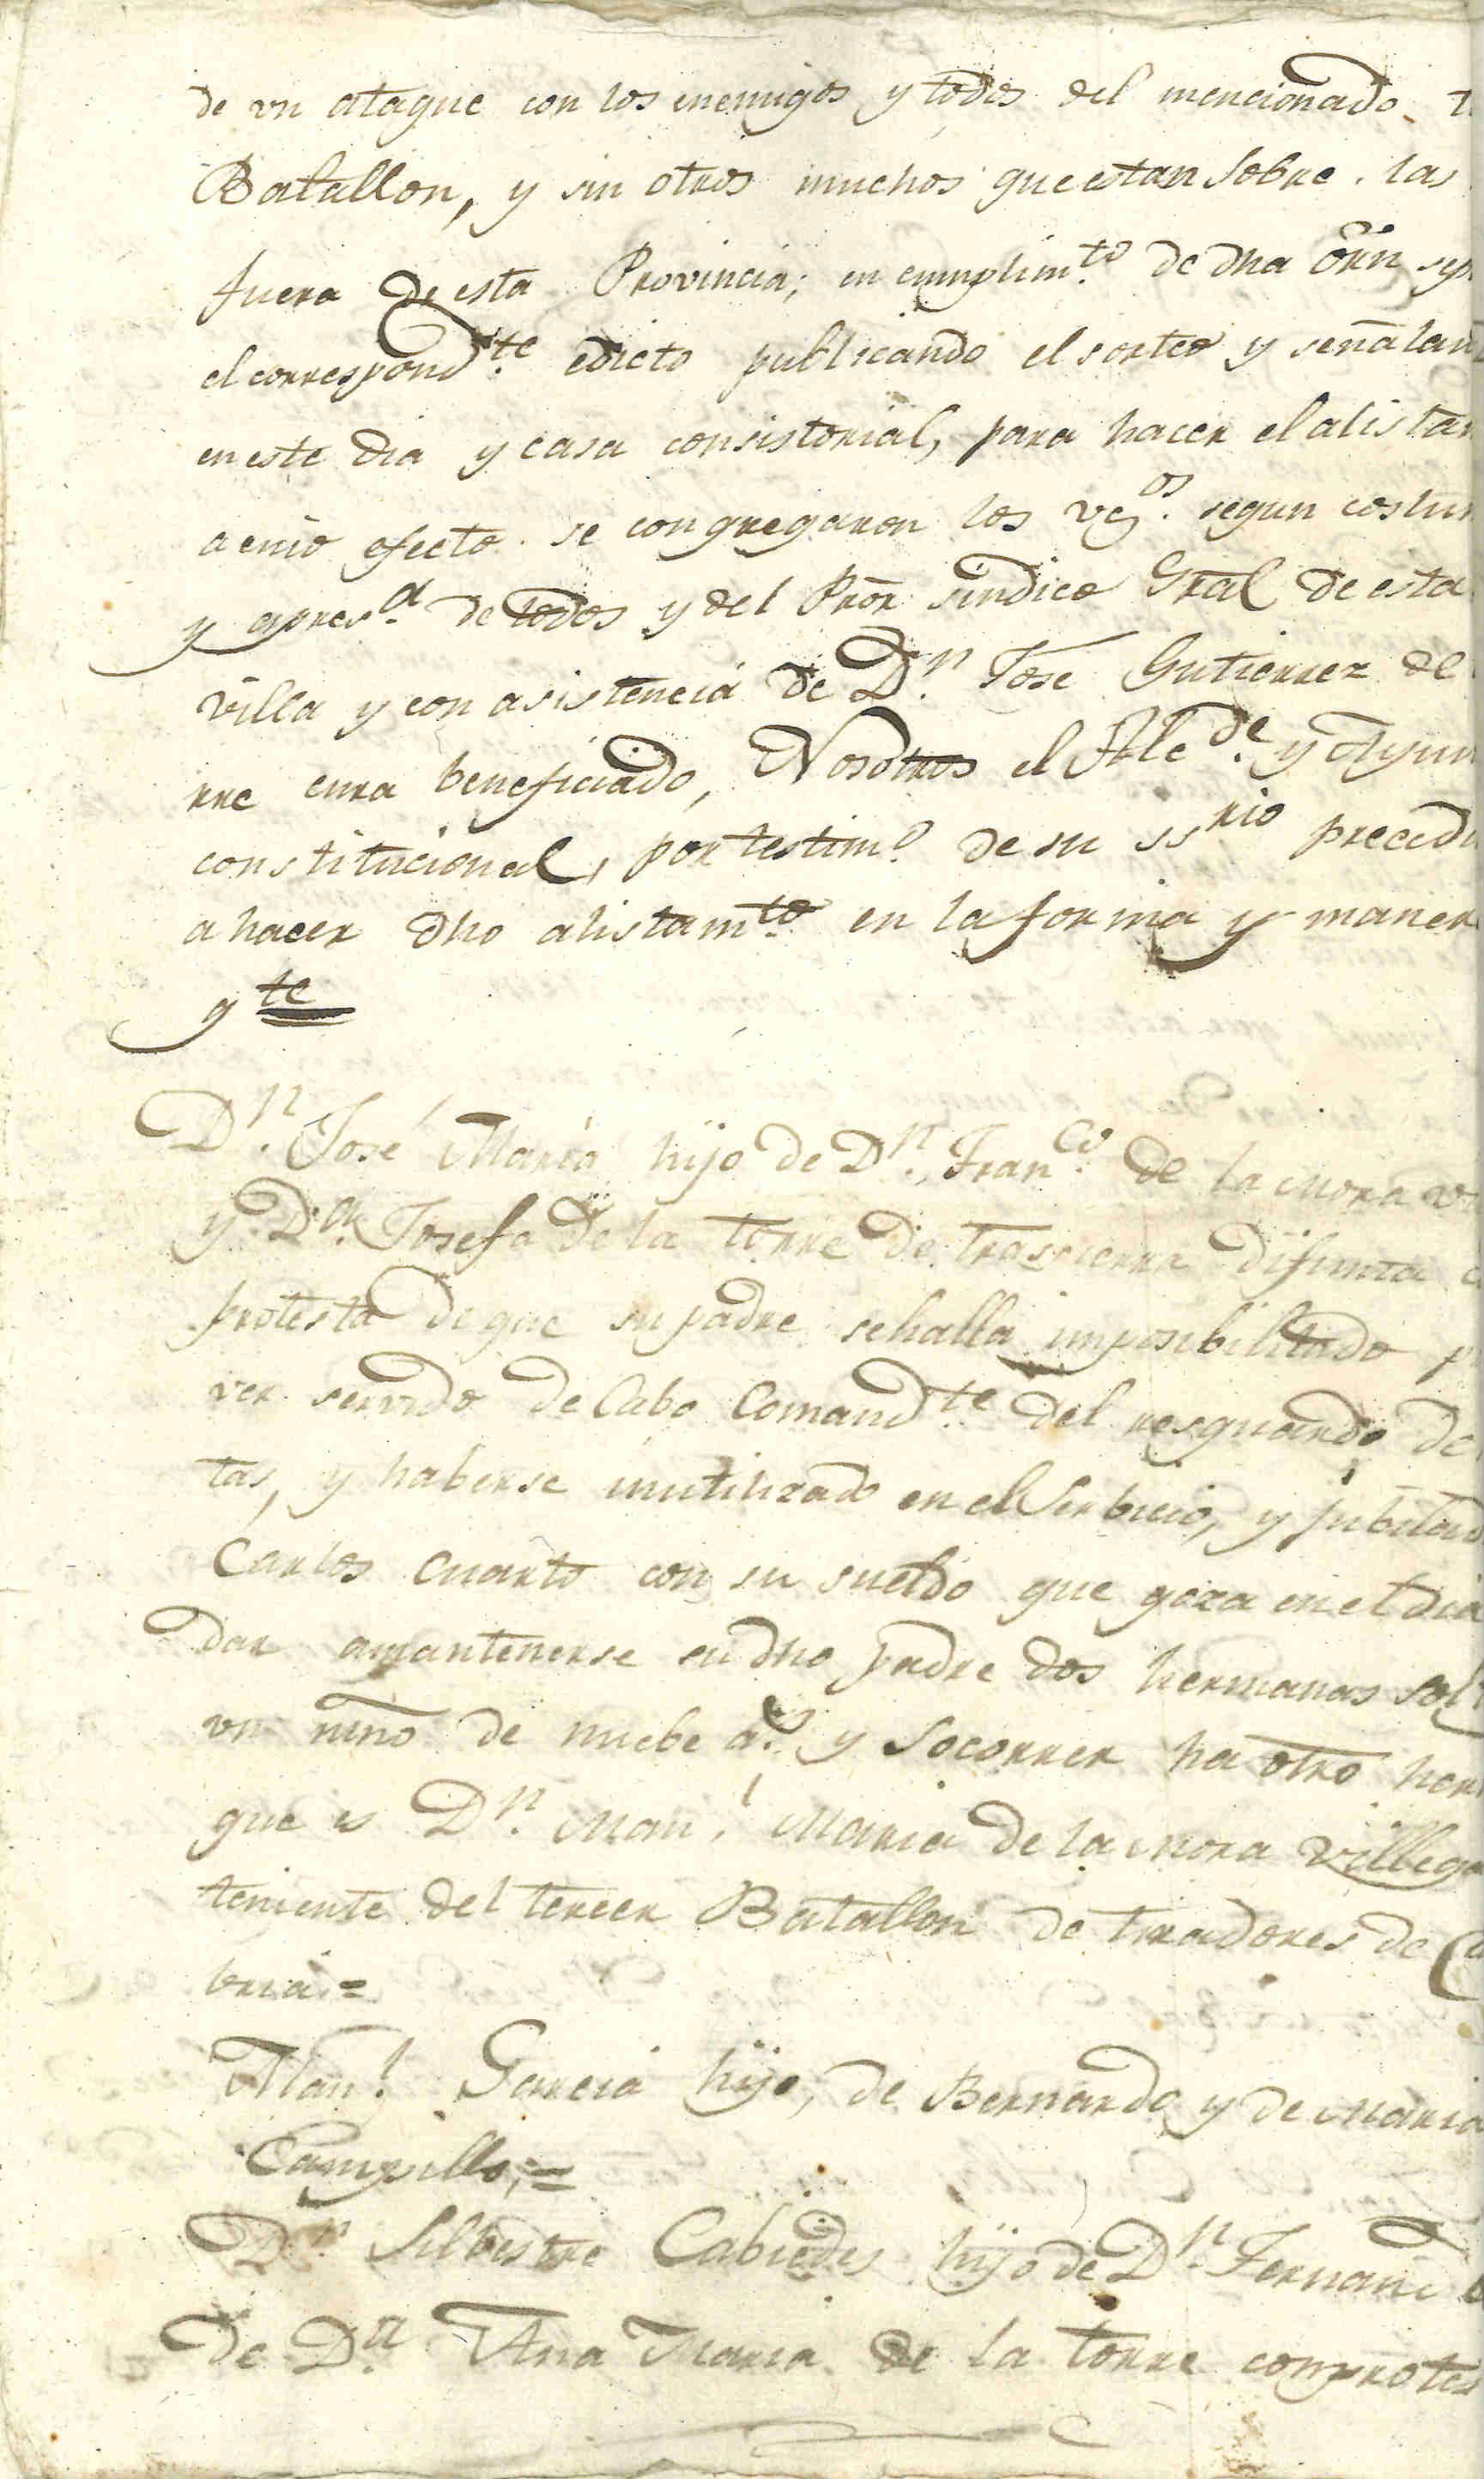 de vn ataque con los enemigos y todos del mencionado t
Batallon, y sin otros muchos que estan sobre las
fuera de esta Provincia; en cumplim.to de dha orn se
el correspond.te edicto publicando el sorteo y señalan
en este dia y casa consistorial, para hacer el alistam
a cuio efecto se congregaron los vez.os segun costum
y a pres.a de todos y del Pror sindico Gral de esta
villa y con asistencia de D.n Jose Gutierrez de
rre cura beneficiado, Nosotros el Alc.de y Ayun
constitucional, por testim.o de su ss.rio precedi
a hacer dho alistam.to en la forma y maner
g.te
D.n José Maria hijo de D.n Fran.co de la Mora v
y D.a Josefa de la torre de trassierra difunta c
protesta de que su padre se halla imposibilitado p
ver servido de Cabo Comand.te del resguardo de
tas, y haberse inutilizado en el serbicio, y jubilad
Carlos cuarto con su sueldo que goza en el dia
dar a mantenerse su dho padre dos hermanas sol
vn niño de nuebe a.s y socorrer ha otro her
que es D.n Man.l Maria de la Mora Villega
teniente del tercer Batallon de tiradores de Ca
bria =
Man.l Garcia hijo, de Bernardo y de Maria
Campillo, =
D.n Silbestre Cabiedes hijo de D.n Fernan
de D.a Ana Maria de la torre con protes